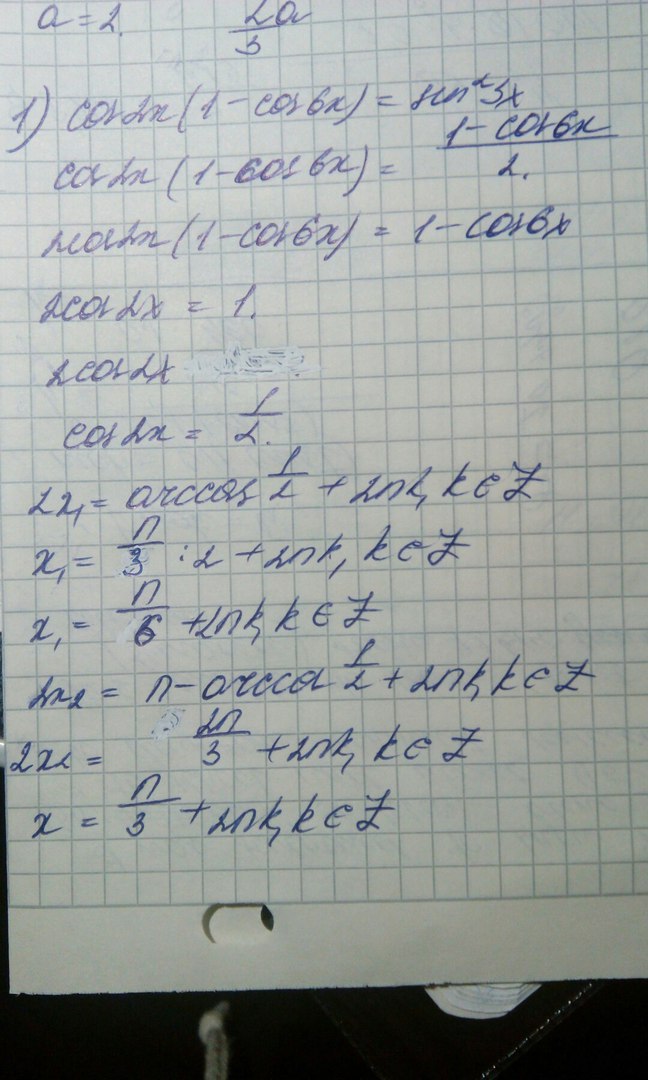 a = 2. 2a/3
1) cos2x(1 - cos6x) = sin²3x
cos2x(1 - cos6x) = (1 - cos6x)/2.
2cos2x(1 - cos6x) = 1 - cos6x
2cos2x = 1.
2cos2x
cos2x = 1/2.
2x₁ = arccos 1/2 + 2πk, k ∈ Z
x₁ = π/3 : 2 + 2πk, k ∈ Z
x₁ = π/6 + 2πk, k ∈ Z
2x₂ = π - arccos 1/2 + 2πk, k ∈ Z
2x₂ = 2π/3 + 2πk, k ∈ Z
x = π/3 + 2πk, k ∈ Z